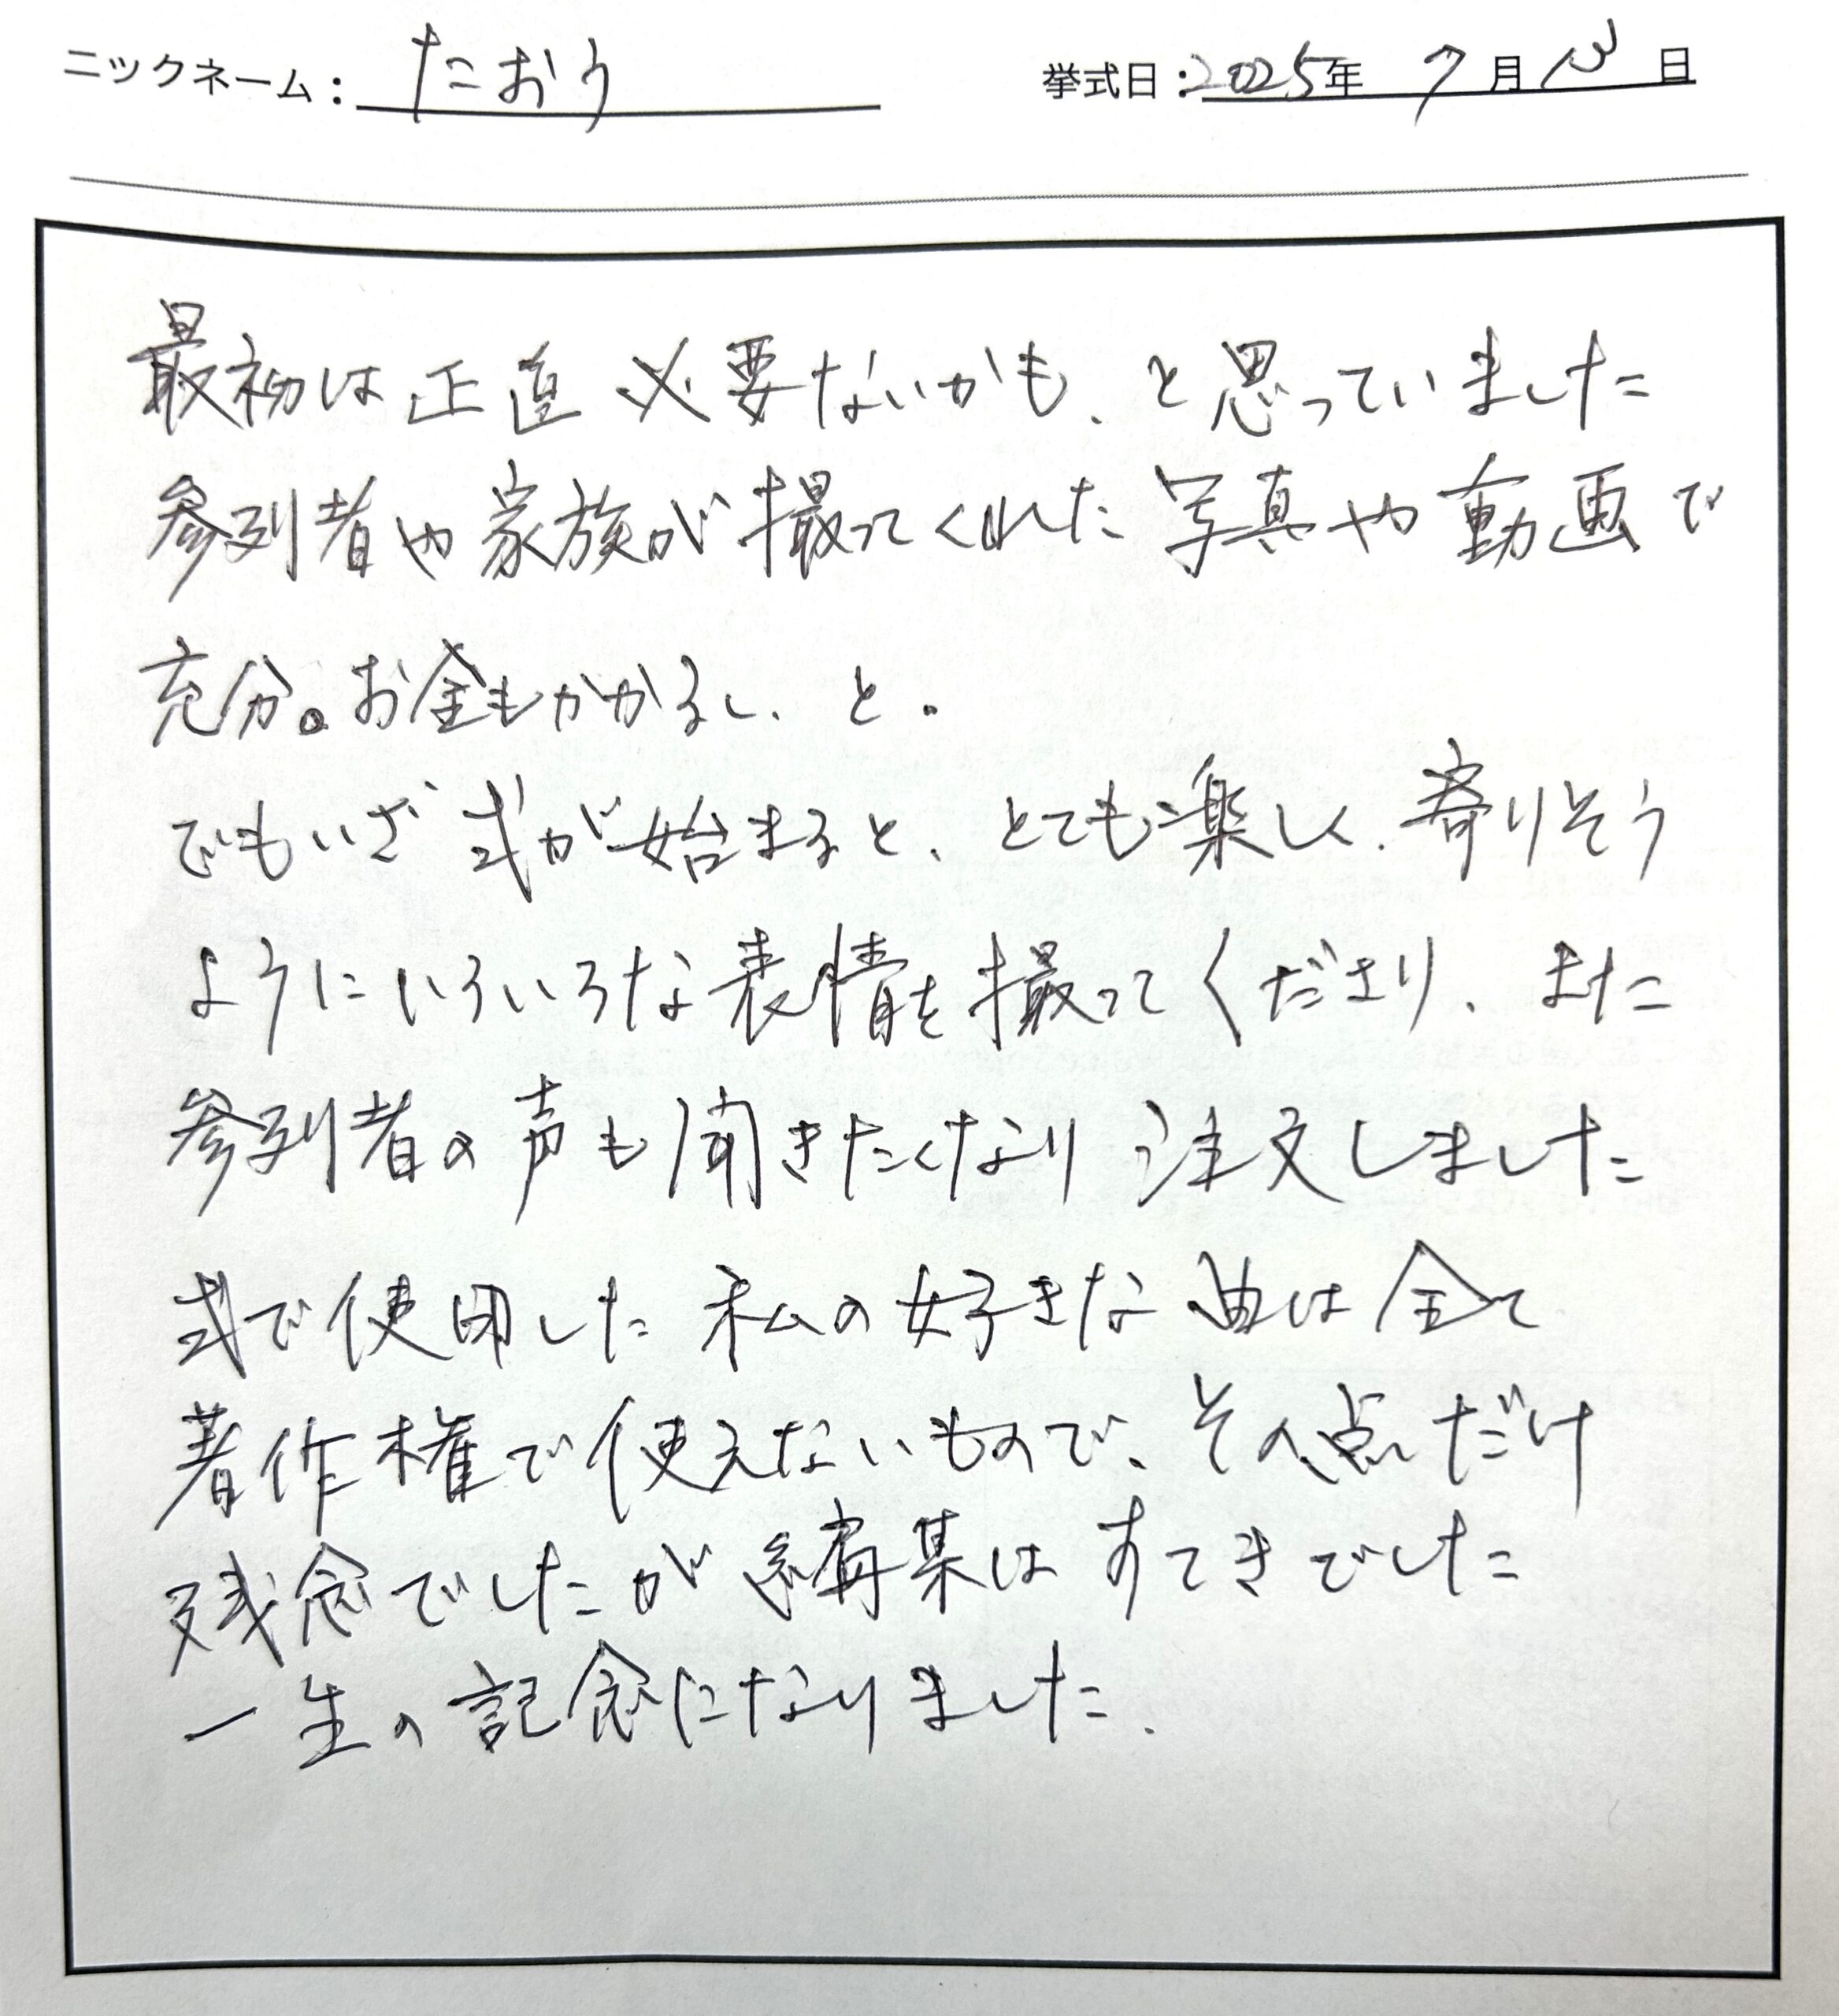 ニックネーム: たおう 挙式日:2025年 7月13日
最初は正直 必要ないかも、と思っていました
参列者や家族が撮ってくれた写真や動画で
充分。お金もかかるし、と。
でもいざ式が始まると、とても楽しく、寄りそう
ようにいろいろな表情を撮ってくださり、また
参列者の声も聞きたくなり注文しました
式で使用した私の好きな曲は全て
著作権で使えないもので、その点だけ
残念でしたが編集はすてきでした
一生の記念になりました.